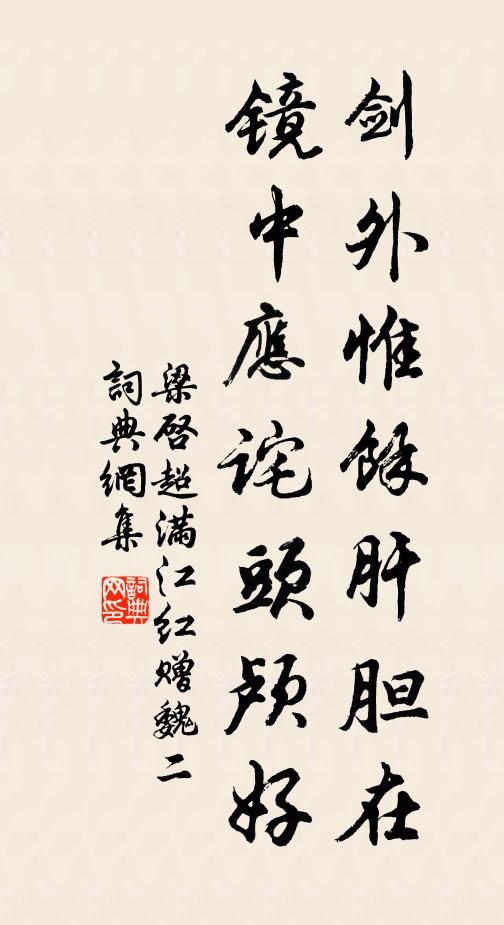 剑外惟馀肝胆在
镜中應诧頭颅好
梁启超满江红赠魏二
詞典網集
詞典網印